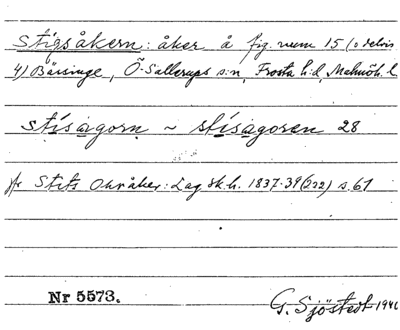 Stigsåkern: åker å fig. num 15 (o delvis
4) Bäsinge, Ö-Sallerups s:n, Frosta h:d, Malmöh. l.
stísagorn ~ stísagoren 28
jfr Stits Ow åker: Lag sk. h. 1837-39 (222) s. 61
Nr 5573.
G. Sjöstedt 1940